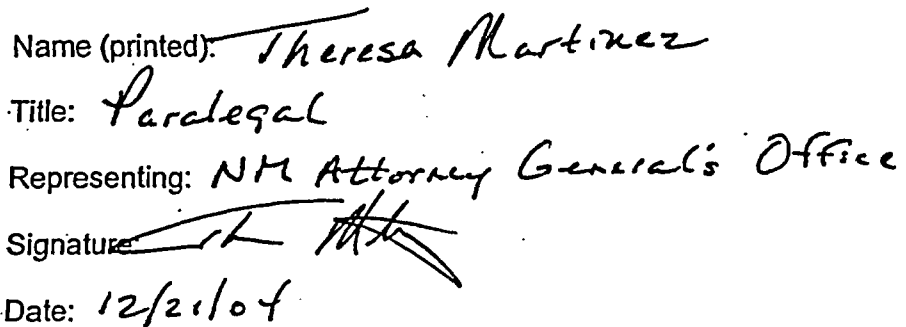 Name (printed): Theresa Martinez
Title: Paralegal
Representing: NM Attorney General's Office
Signature:
Date: 12/21/04